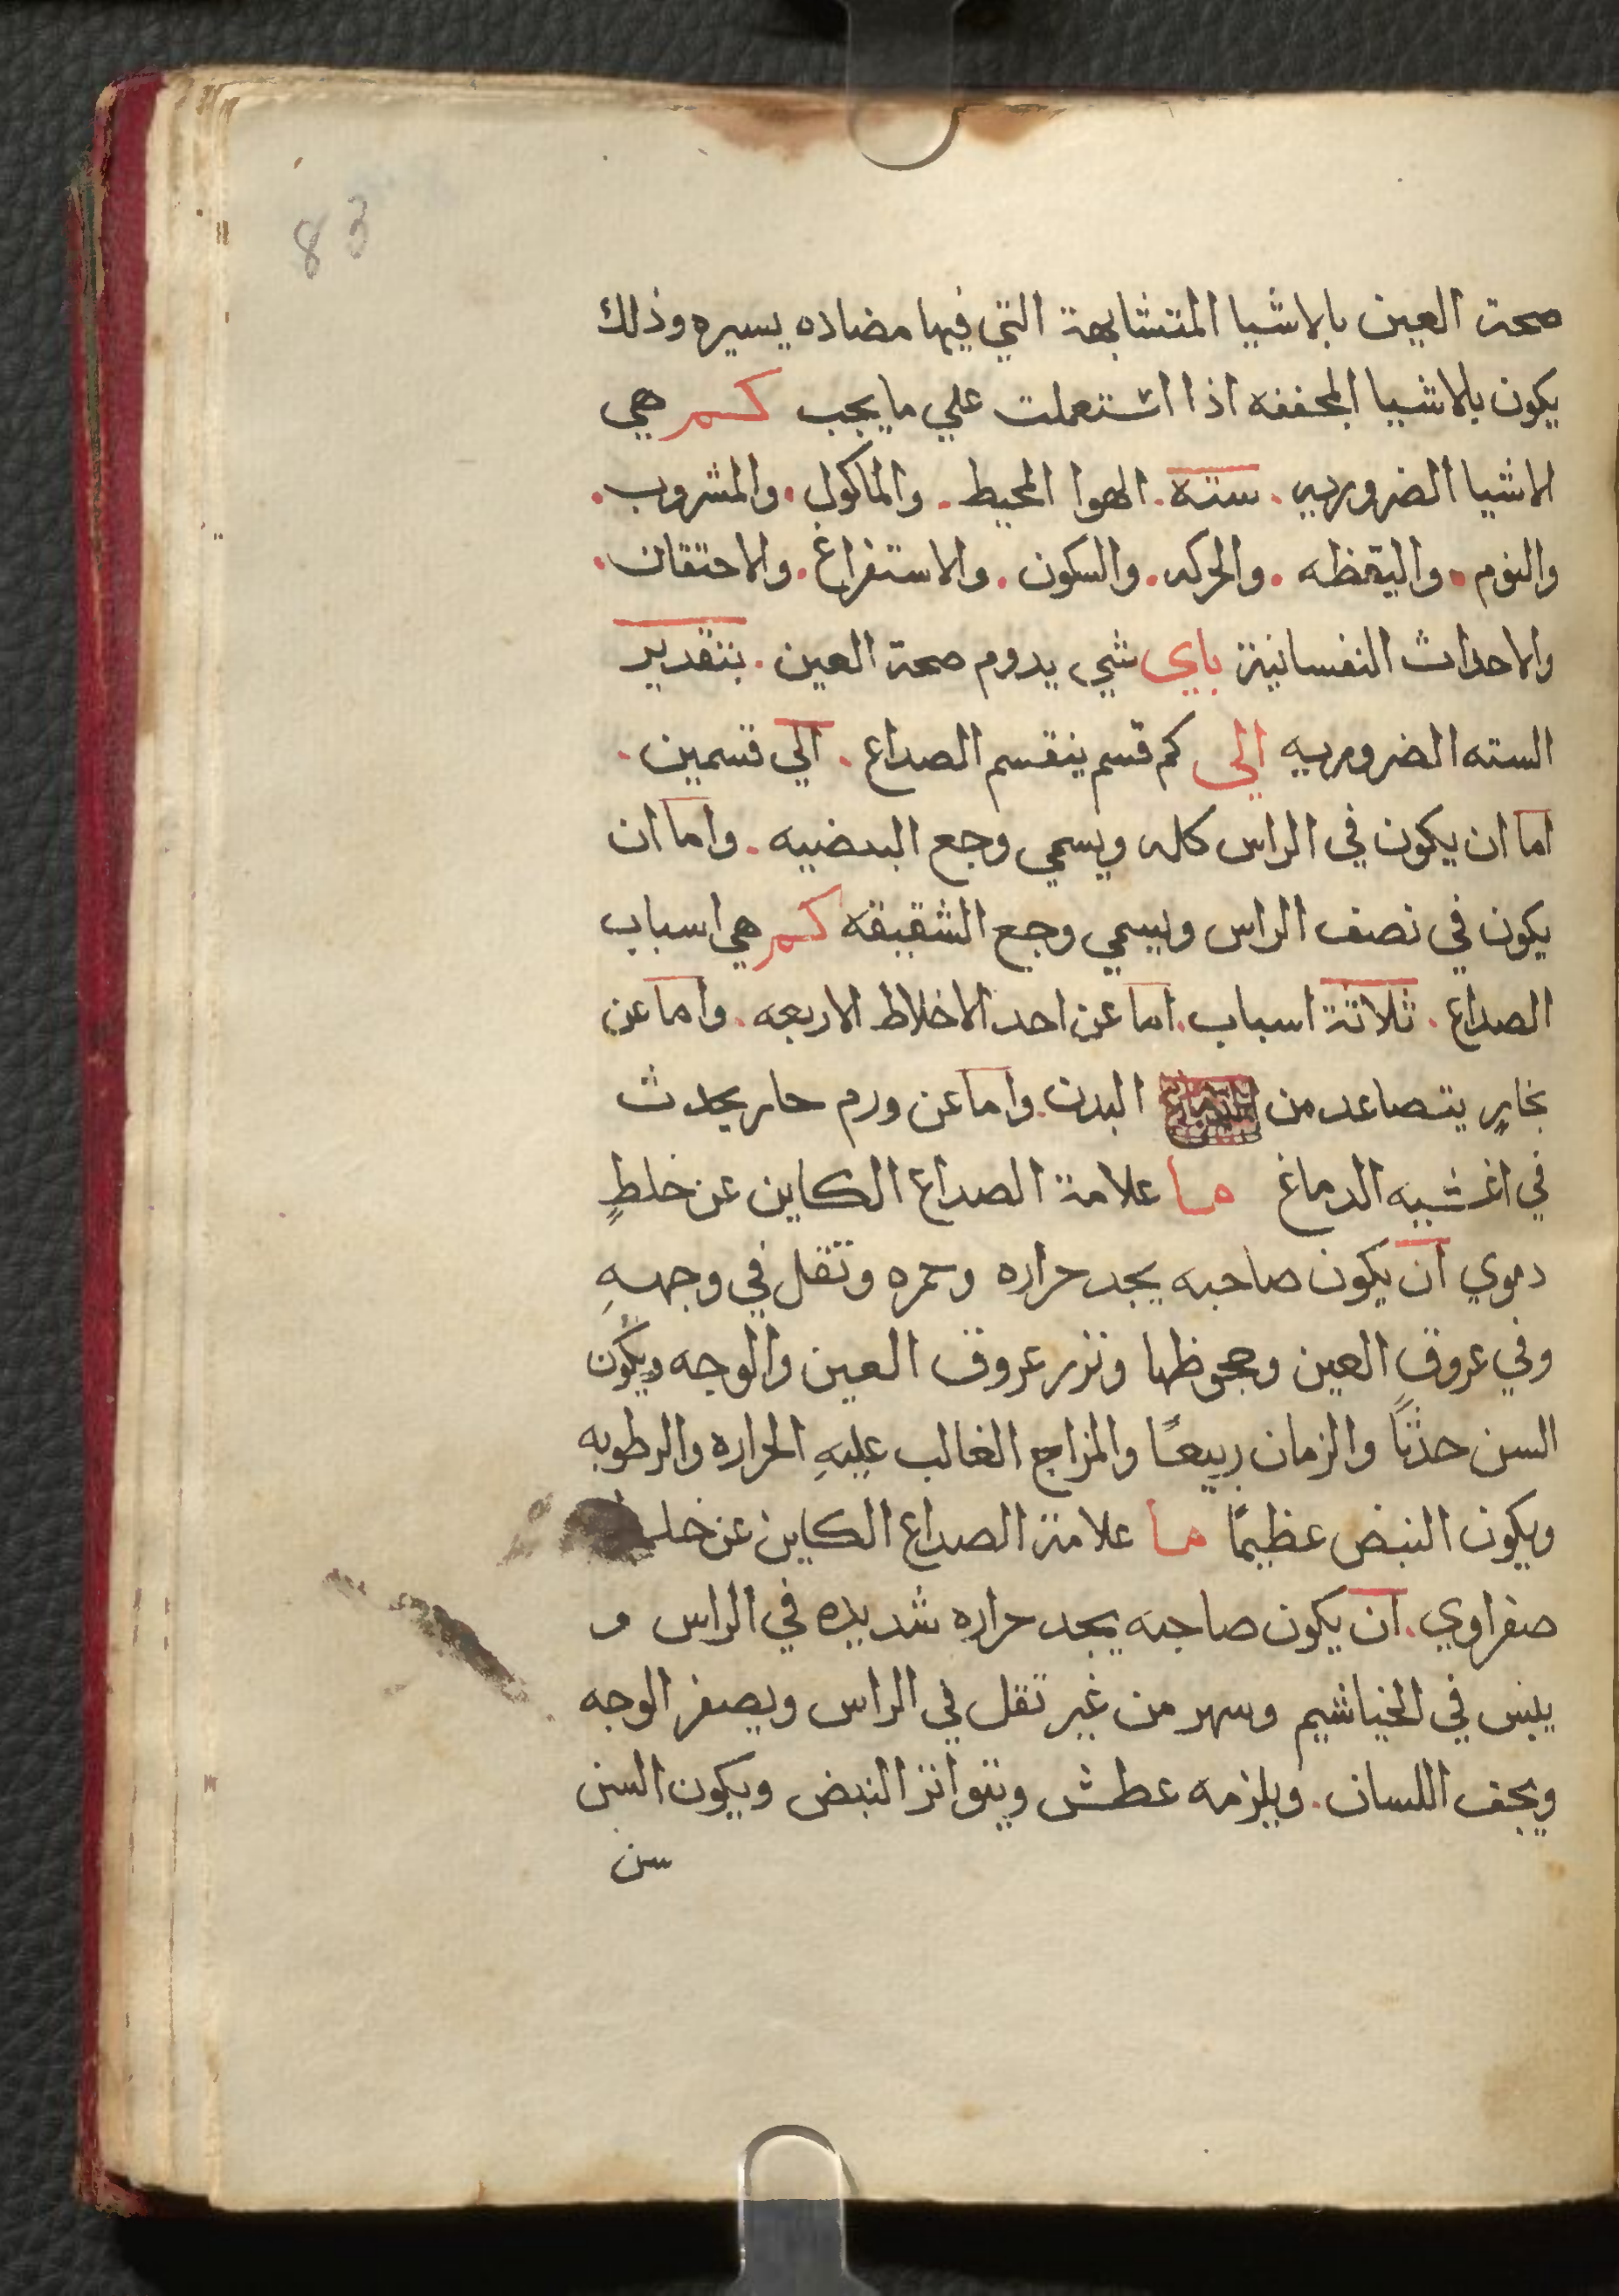 83
صحة العين بالاشيا المتشابهة التي فيها مضاده يسيره وذلك
يكون بالاشيا المجففه اذا اشتعملت علي ما يجب كم هي
الاشيا الضروريه . ستة . الهوا المحيط . والماكول . والمشروب .
والنوم . واليقظه . والحركه . والسكون . والاستفراغ . والاحتقان .
والاحداث النفسانية باي شي يدوم صحة العين . بتقدير
السته الضروريه الي كم قسم ينقسم الصداع . الي قسمين .
اما ان يكون في الراس كله ويسمي وجع البيضيه . واما ان
يكون في نصف الراس ويسمي وجع الشقيقه كم هي اسباب
الصداع . ثلاثة اسباب . اما عن احد الاخلاط الاربعه . واما عن
بخارٍ يتصاعد من البدن . واما عن ورم حار يحدث
في اغشيه الدماغ ما علامة الصداع الكاين عن خلطٍ
دموي ان يكون صاحبه يجد حراره وحمره وثقل في وجههِ
وفي عروق العين وجحوظها وتزر عروق العين والوجه ويكون
السن حدثاً والزمان ربيعاً والمزاج الغالب عليهِ الحراره والرطوبه
ويكون النبض عظيماً ما علامة الصداع الكاين عن خلط
صفراوي . ان يكون صاحبه يجد حراره شديده في الراس و
يبس في الخياشيم وسهر من غير تقل في الراس ويصفر الوجه
ويجف اللسان . ويلزمه عطش ويتواتر النبض ويكون السن
سن